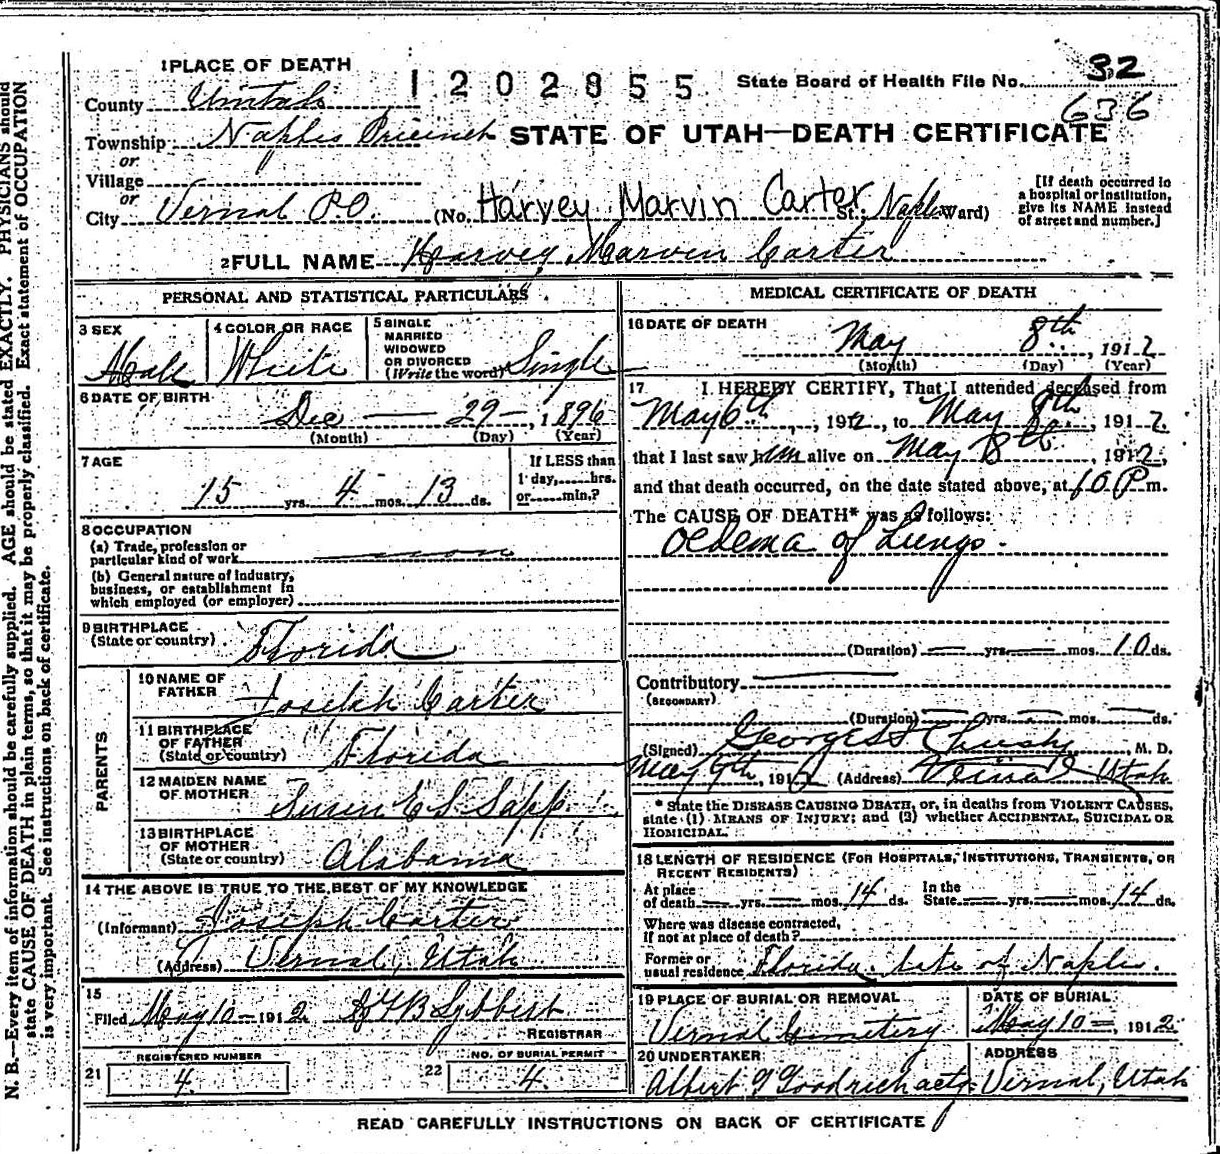 N. B.—Every item of information should be carefully supplied. AGE should be stated EXACTLY. PHYSICIANS should
state CAUSE OF DEATH in plain terms, so that it may be properly classified. Exact statement of OCCUPATION
is very important. See instructions on back of certificate.
1 PLACE OF DEATH
1202855
State Board of Health File No. 32
636
County Uintah
Township Naples Precinct
STATE OF UTAH—DEATH CERTIFICATE
or
Village
or
City Vernal P.O. (No. Harvey Marvin Carter St.; Naples Ward)
[If death occurred in
a hospital or institution,
give its NAME instead
of street and number.]
2 FULL NAME Harvey Marvin Carter
PERSONAL AND STATISTICAL PARTICULARS
3 SEX
Male
4 COLOR OR RACE
White
5 SINGLE
MARRIED
WIDOWED
OR DIVORCED
(Write the word) Single
6 DATE OF BIRTH
Dec — 29 — , 1896
(Month) (Day) (Year)
7 AGE
15 yrs. 4 mos. 13 ds.
If LESS than
1 day,......hrs.
or......min.?
8 OCCUPATION
(a) Trade, profession or
particular kind of work
(b) General nature of industry,
business, or establishment in
which employed (or employer)
9 BIRTHPLACE
(State or country) Florida
PARENTS
10 NAME OF
FATHER Joseph Carter
11 BIRTHPLACE
OF FATHER
(State or country) Florida
12 MAIDEN NAME
OF MOTHER Susen E S Sapp
13 BIRTHPLACE
OF MOTHER
(State or country) Alabama
14 THE ABOVE IS TRUE TO THE BEST OF MY KNOWLEDGE
(Informant) Joseph Carter
(Address) Vernal, Utah
15
Filed May 10 - 1912 Lybbert
REGISTRAR
REGISTERED NUMBER
21 4
NO. OF BURIAL PERMIT
22 4
MEDICAL CERTIFICATE OF DEATH
16 DATE OF DEATH
May 8th, 1912
(Month) (Day) (Year)
17 I HEREBY CERTIFY, That I attended deceased from
May 6th, 1912, to May 8th, 1912.
that I last saw him alive on May 8th, 1912,
and that death occurred, on the date stated above, at 10 P m.
The CAUSE OF DEATH* was as follows:
Oedema of Lungs.
(Duration) — yrs. — mos. 10 ds.
Contributory
(SECONDARY)
(Duration) — yrs. — mos. — ds.
(Signed) George , M. D.
May 9th, 1912 (Address) Vernal Utah
* State the DISEASE CAUSING DEATH, or, in deaths from VIOLENT CAUSES,
state (1) MEANS OF INJURY; and (2) whether ACCIDENTAL, SUICIDAL OR
HOMICIDAL.
18 LENGTH OF RESIDENCE (FOR HOSPITALS, INSTITUTIONS, TRANSIENTS, OR
RECENT RESIDENTS)
At place
of death — yrs. — mos. 14 ds.
In the
State — yrs. — mos. 14 ds.
Where was disease contracted,
if not at place of death?
Former or
usual residence Florida. Late of Naples.
19 PLACE OF BURIAL OR REMOVAL
Vernal Cemetery
DATE OF BURIAL
May 10 —, 1912
20 UNDERTAKER
Albert G Goodrich actg.
ADDRESS
Vernal, Utah
READ CAREFULLY INSTRUCTIONS ON BACK OF CERTIFICATE